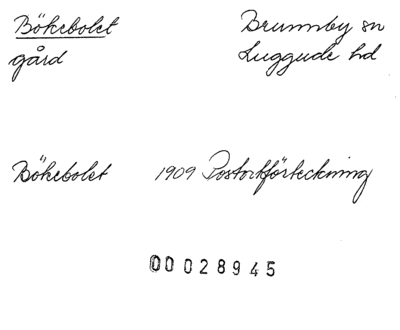 Bökebolet Brunnby sn
gård Luggude hd
Bökebolet 1909 Postortförteckning
00028945